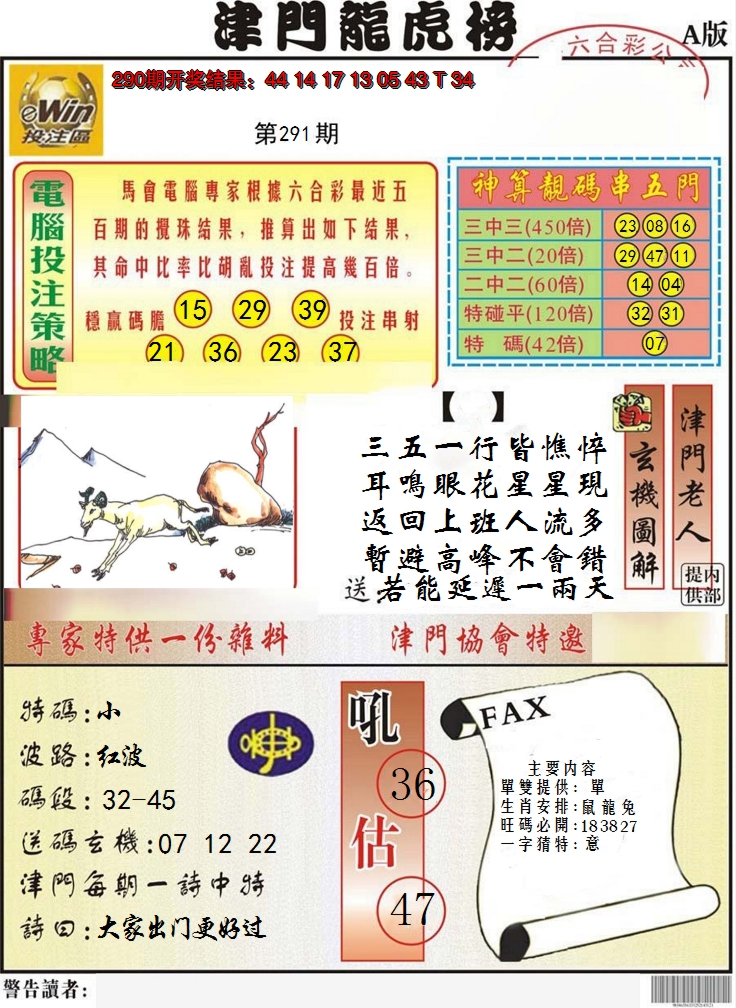 津門龍虎榜
六合彩公
A版
eWin
投注區
290期开奖结果：44 14 17 13 05 43 T 34
第291期
電腦投注策略
馬會電腦專家根據六合彩最近五
百期的攪珠结果，推算出如下结果，
其命中比率比胡亂投注提高幾百倍。
穩贏碼膽 15 29 39 投注串射
21 36 23 37
神算靚碼串五門
三中三(450倍) 23 08 16
三中二(20倍) 29 47 11
二中二(60倍) 14 04
特碰平(120倍) 32 31
特 碼(42倍) 07
【 】
三五一行皆憔悴
耳鳴眼花星星現
返回上班人流多
暫避高峰不會錯
送:若能延遲一兩天
玄機圖解
津門老人
内部提供
專家特供一份雜料
津門協會特邀
特碼:小
波路:红波
碼段:32-45
送碼玄機:07 12 22
津門每期一詩中特
詩曰:大家出门更好过
吼
36
估
47
FAX
主要内容
單雙提供: 單
生肖安排:鼠龍兔
旺碼必開:183827
一字猜特:意
警告讀者: